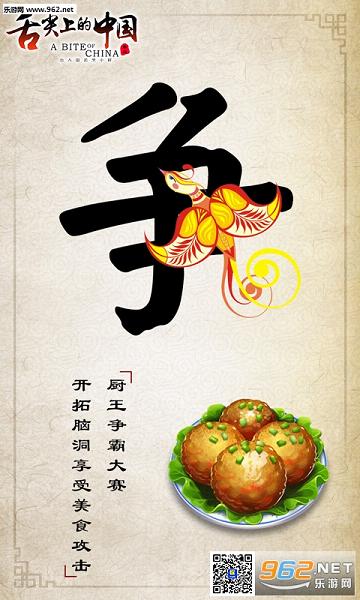 乐游网
www.962.net
舌尖上的中国
A BITE OF
CHINA
争
厨王争霸大赛
开拓脑洞享受美食攻击
962.NET
乐游网